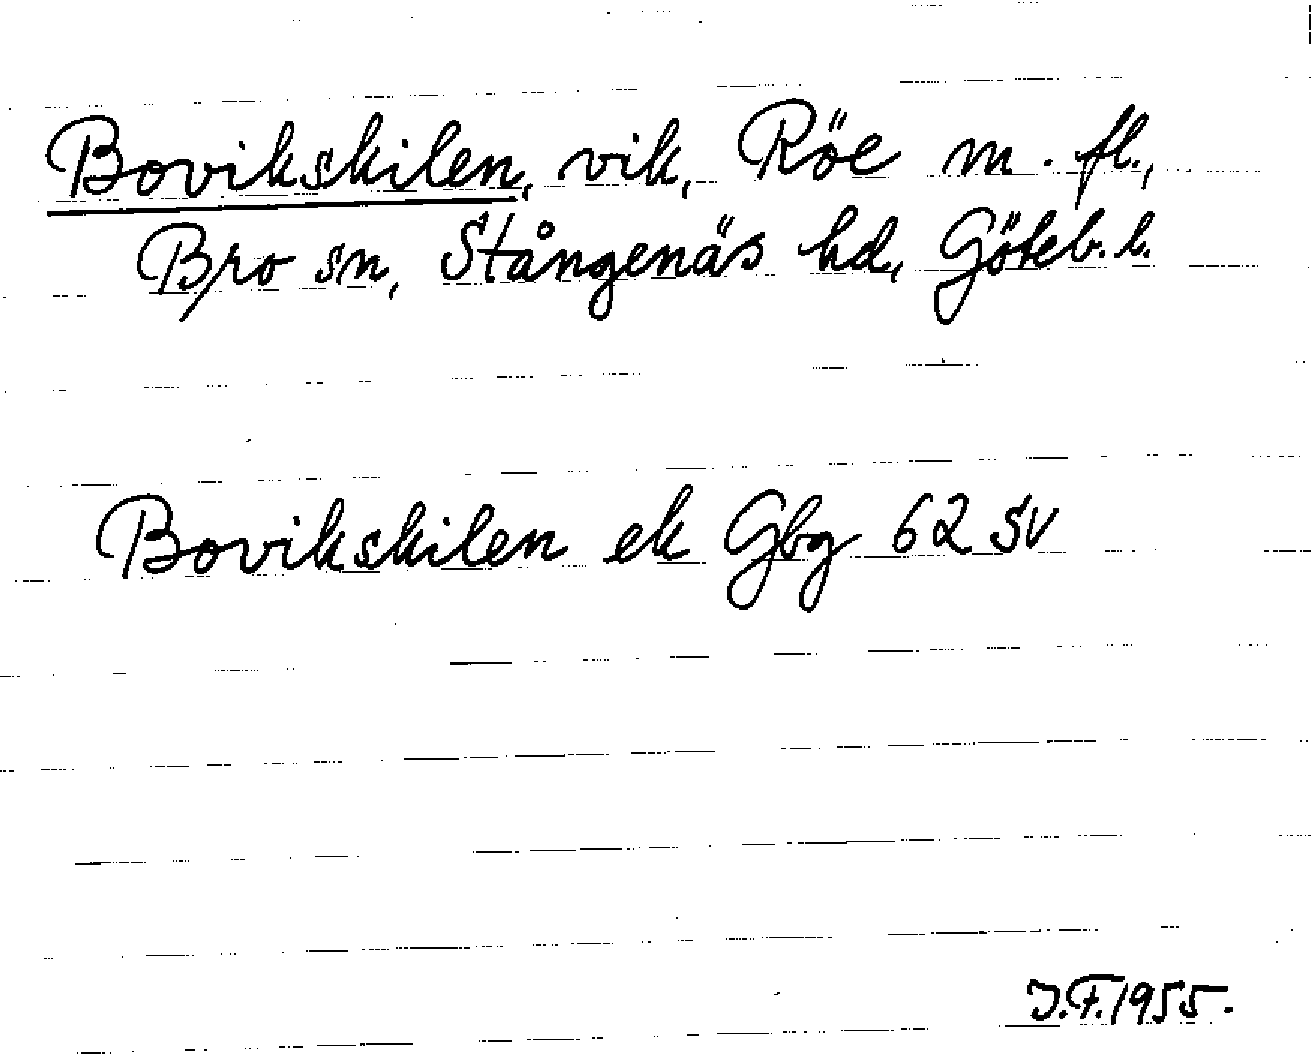 Bovikskilen, vik, Röe m. fl.,
Bro sn, Stångenäs hd, Göteb. l.
Bovikskilen ek Gbg 62 SV
J.F. 1955.